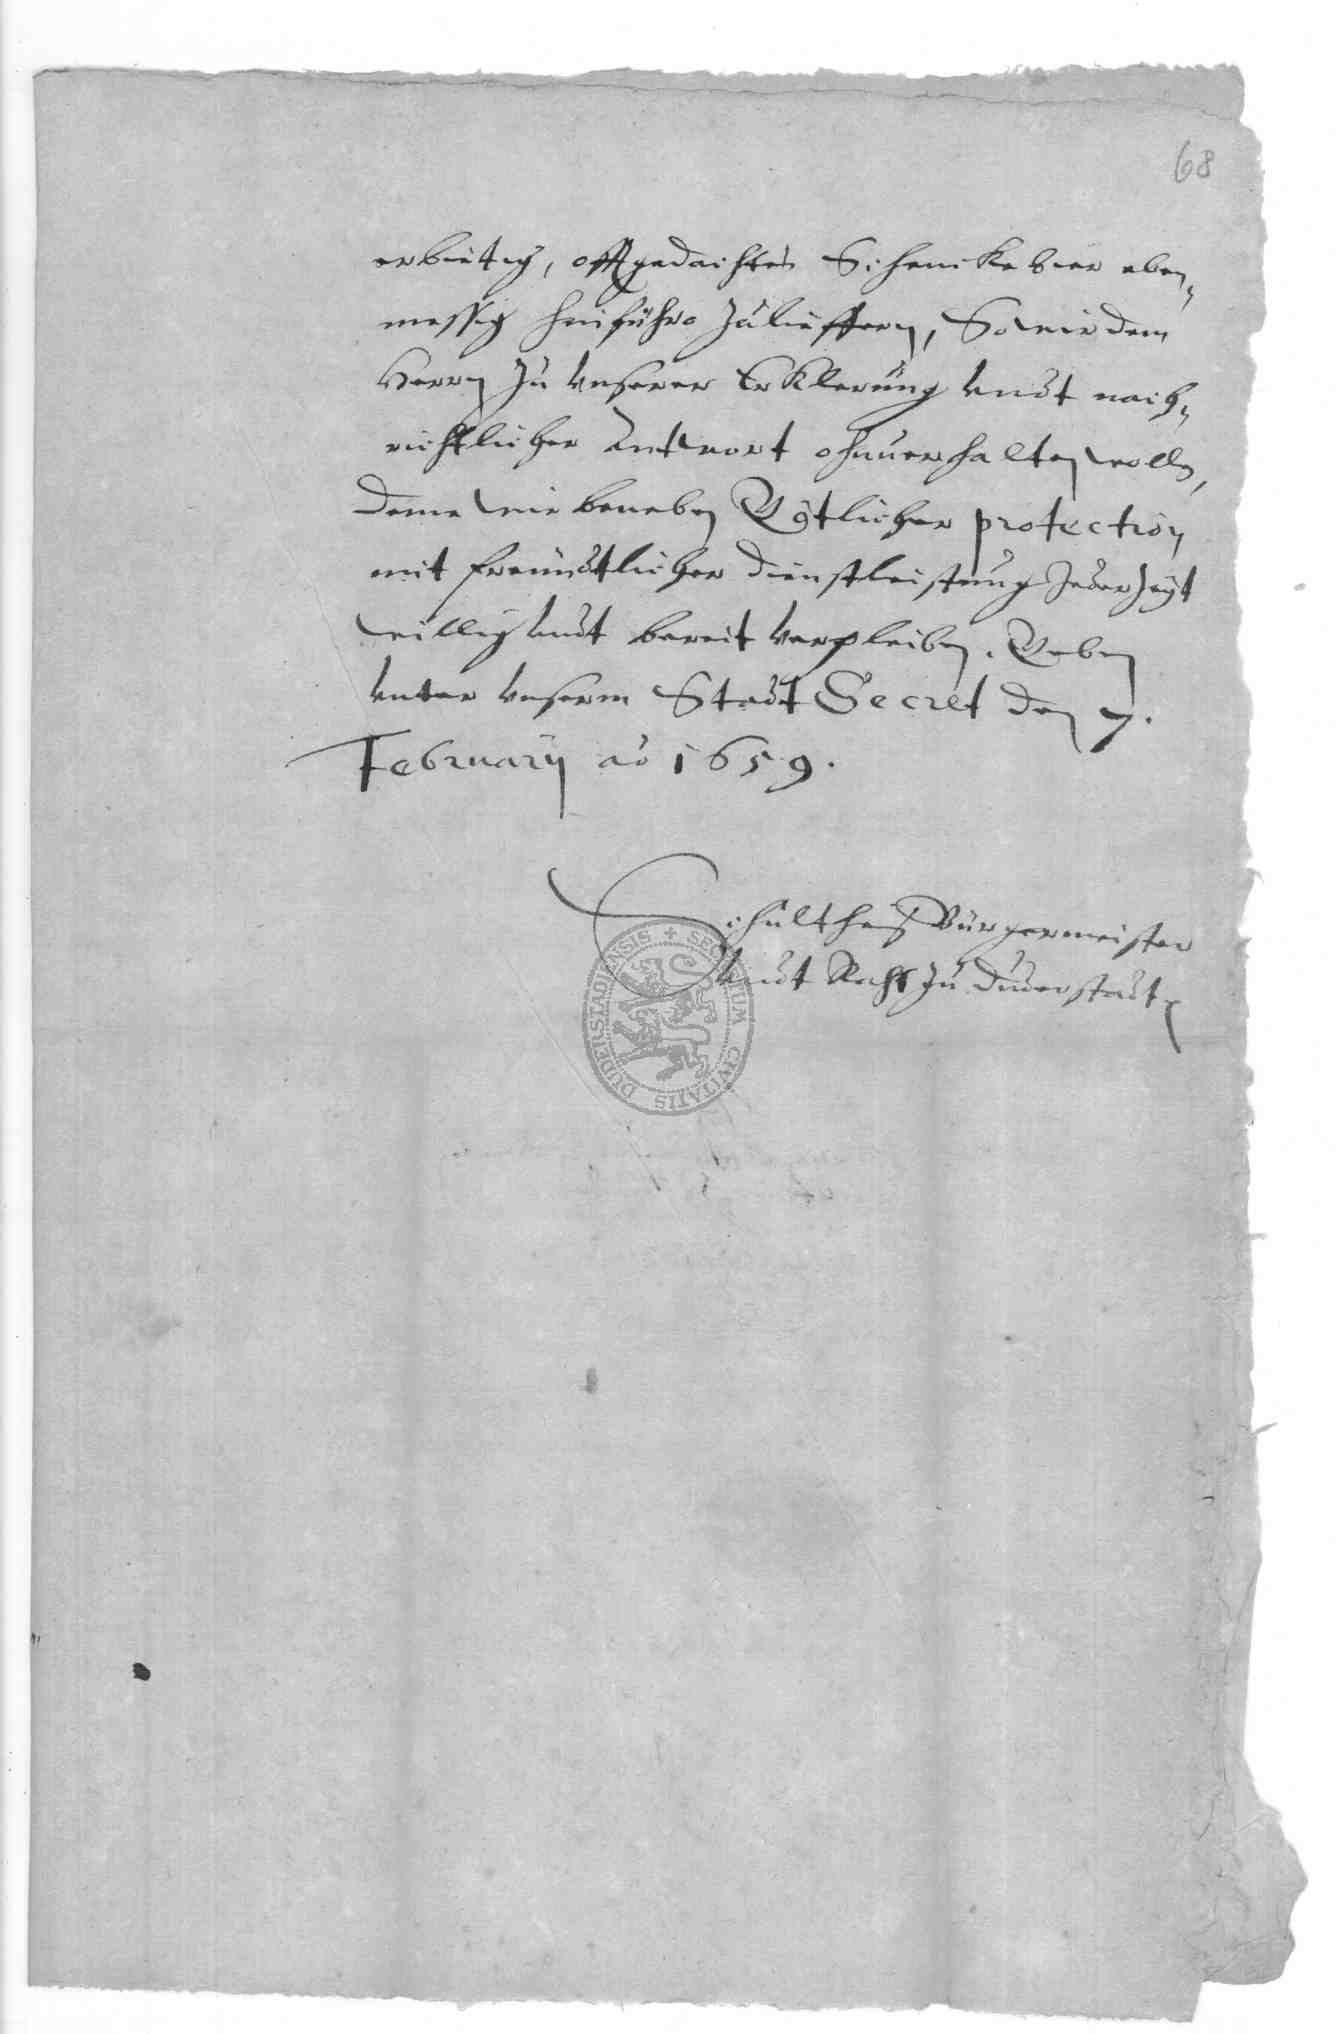 68
erbietig, offtgedachtes Schencke bier eben„
messig hinführo zu lieffern, So wir dem
Herrn zu vnserer Erklerung vndt nach„
richtlicher Antwort ohnuerhalten wollen,
deme wir beneben Götlicher protection
mit freundtlicher dienstleistung Jederzeyt
willig vndt bereit verpleiben. Geben
vnter vnserm Stadt Secret den 7.
February ao 1659.
Schultheß Bürgermeister
vndt Raht zu Duderstadt
SECRETUM CIVITATIS DUDERSTADIENSIS